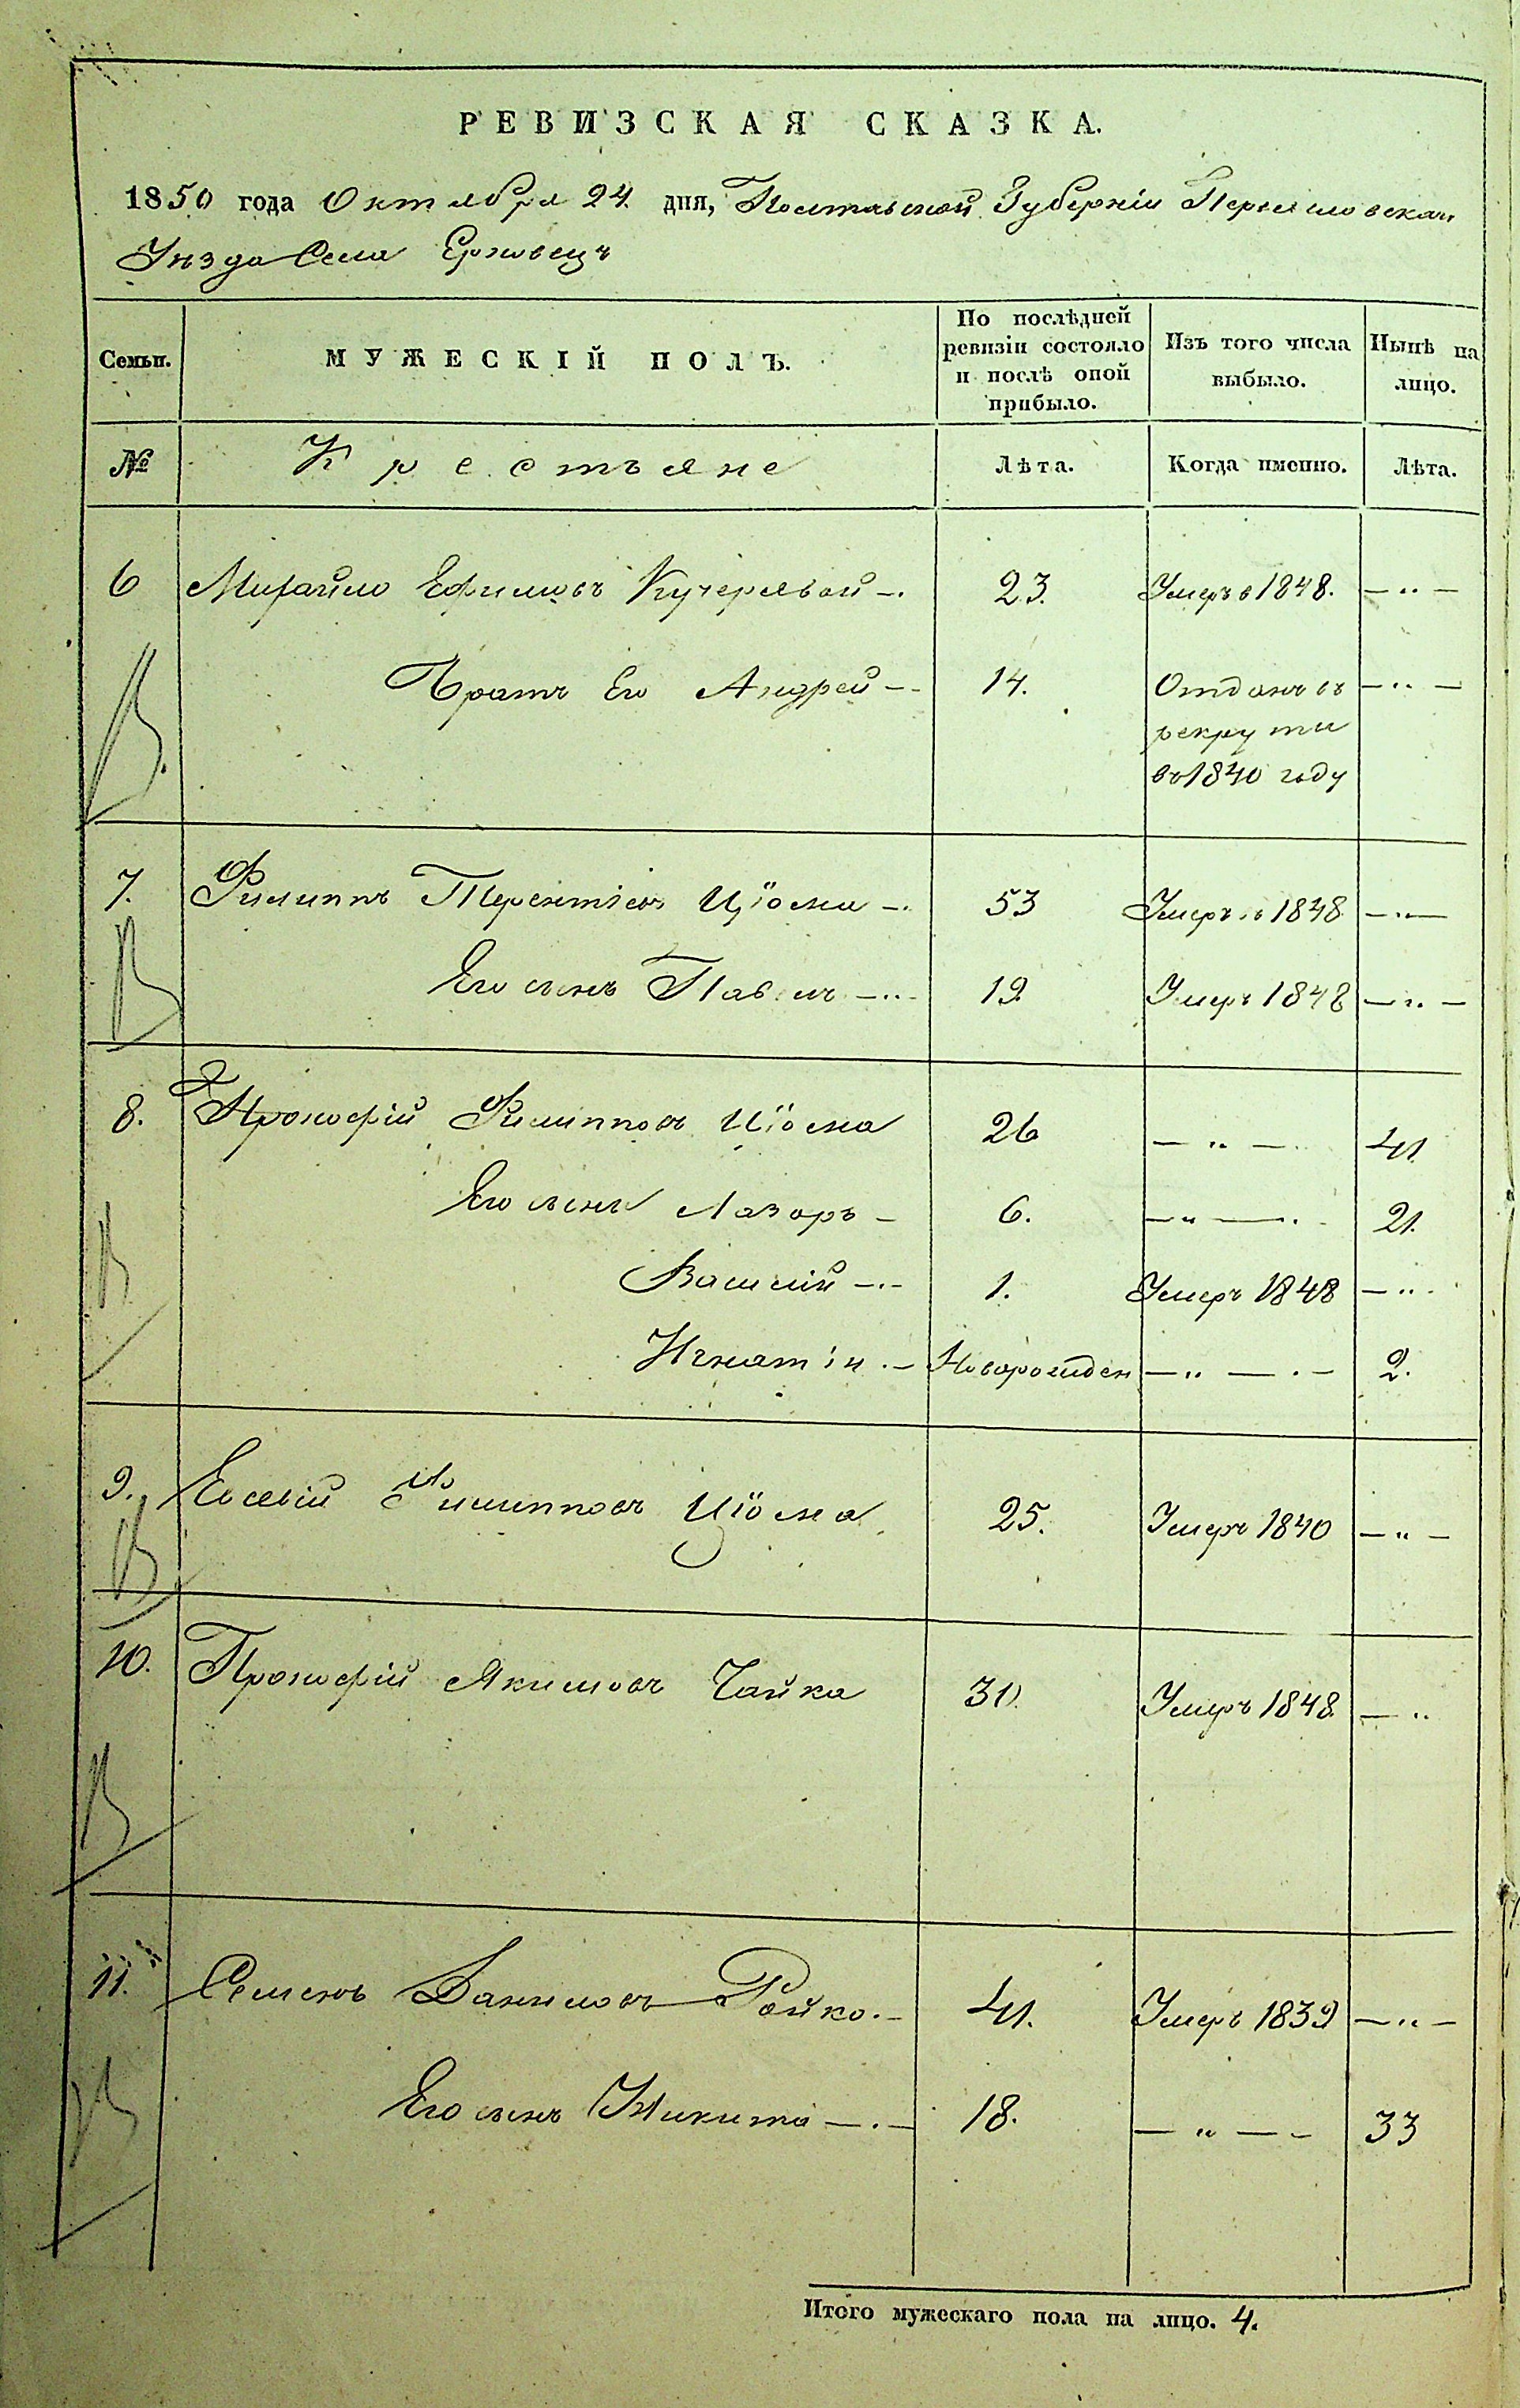 РЕВИЗСКАЯ СКАЗКА.
1850 года Октября 24. дня, Полтавской Губерніи
Уезда Села
Семьи. МУЖЕСКІЙ ПОЛЪ. По послѣдней ревизіи состояло и послѣ оной прибыло. Изъ того числа выбыло. Нынѣ на лицо.
№ Крестьяне Лѣта. Когда именно. Лѣта.
6 Михайло Ефимовъ Кучерявой 23. Умеръ в 1848. — „ —
Братъ Его Андрей 14. Отданъ въ — „ —
рекруты
въ 1840 году
7. Филиппъ Терентіевъ Цїома 53 Умеръ в 1848 — „ —
Его сынъ Павелъ 19. Умеръ 1848 — „ —
8. Прокофій Филипповъ Цїома 26 — „ — 41.
Его сыны Лазорь 6. — „ — 21.
Василій 1. Умеръ 1848 — „
Игнатій Новорожден — „ — 2.
9. Евсевій Филипповъ Цїома 25. Умеръ 1840 — „ —
10. Прокофій Якимовъ Чайка 30. Умеръ 1848. — „
11. Семенъ Даниловъ Ройко. 41. Умеръ 1839 — „ —
Его сынъ Никита 18. — „ — 33
Итого мужескаго пола на лицо. 4.